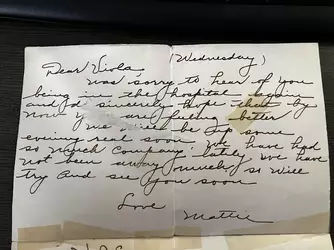 (Wednesday)
Dear Viola
Was sorry to hear of you
being in the hospital again
and I'd sincerely hope that by
now you are feeling better
We will be up some
evening real soon. We have had
so much company lately we have
not been away much so will
try and see you soon
Love
Mattie